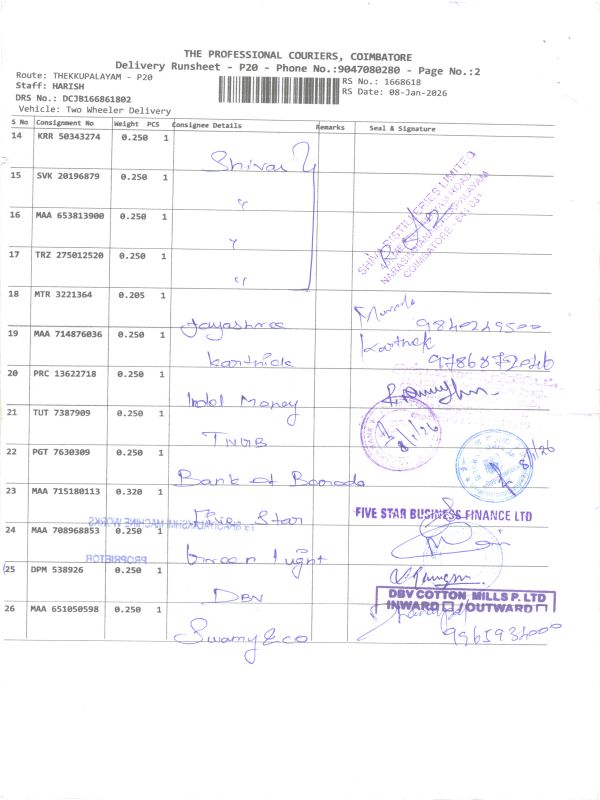 THE PROFESSIONAL COURIERS, COIMBATORE
Delivery Runsheet - P20 - Phone No.:9047080280 - Page No.:2
Route: THEKKUPALAYAM - P20
RS No.: 1668618
Staff: HARISH
RS Date: 08-Jan-2026
DRS No.: DCJB166861802
Vehicle: Two Wheeler Delivery
S No Consignment No Weight PCS Consignee Details Remarks Seal & Signature
14 KRR 50343274 0.250 1 Shivas
15 SVK 20196879 0.250 1 "
16 MAA 653813900 0.250 1 "
17 TRZ 275012520 0.250 1 "
SHIVA DISTILLERIES LIMITED
COIMBATORE
18 MTR 3221364 0.205 1 Jayashree 9840249500
19 MAA 714876036 0.250 1 Karthick Karthek 9786872046
20 PRC 13622718 0.250 1 Indol Money
21 TUT 7387909 0.250 1 TNGB 8/1/26
22 PGT 7630309 0.250 1 Bank of Baroda 8/1/26
23 MAA 715180113 0.320 1 Five Star FIVE STAR BUSINESS FINANCE LTD
24 MAA 708968853 0.250 1 Green Light
PROPRIETOR
25 DPM 538926 0.250 1 DBV
DBV COTTON MILLS P. LTD
INWARD / OUTWARD
26 MAA 651050598 0.250 1 Swamy & co 9965934000